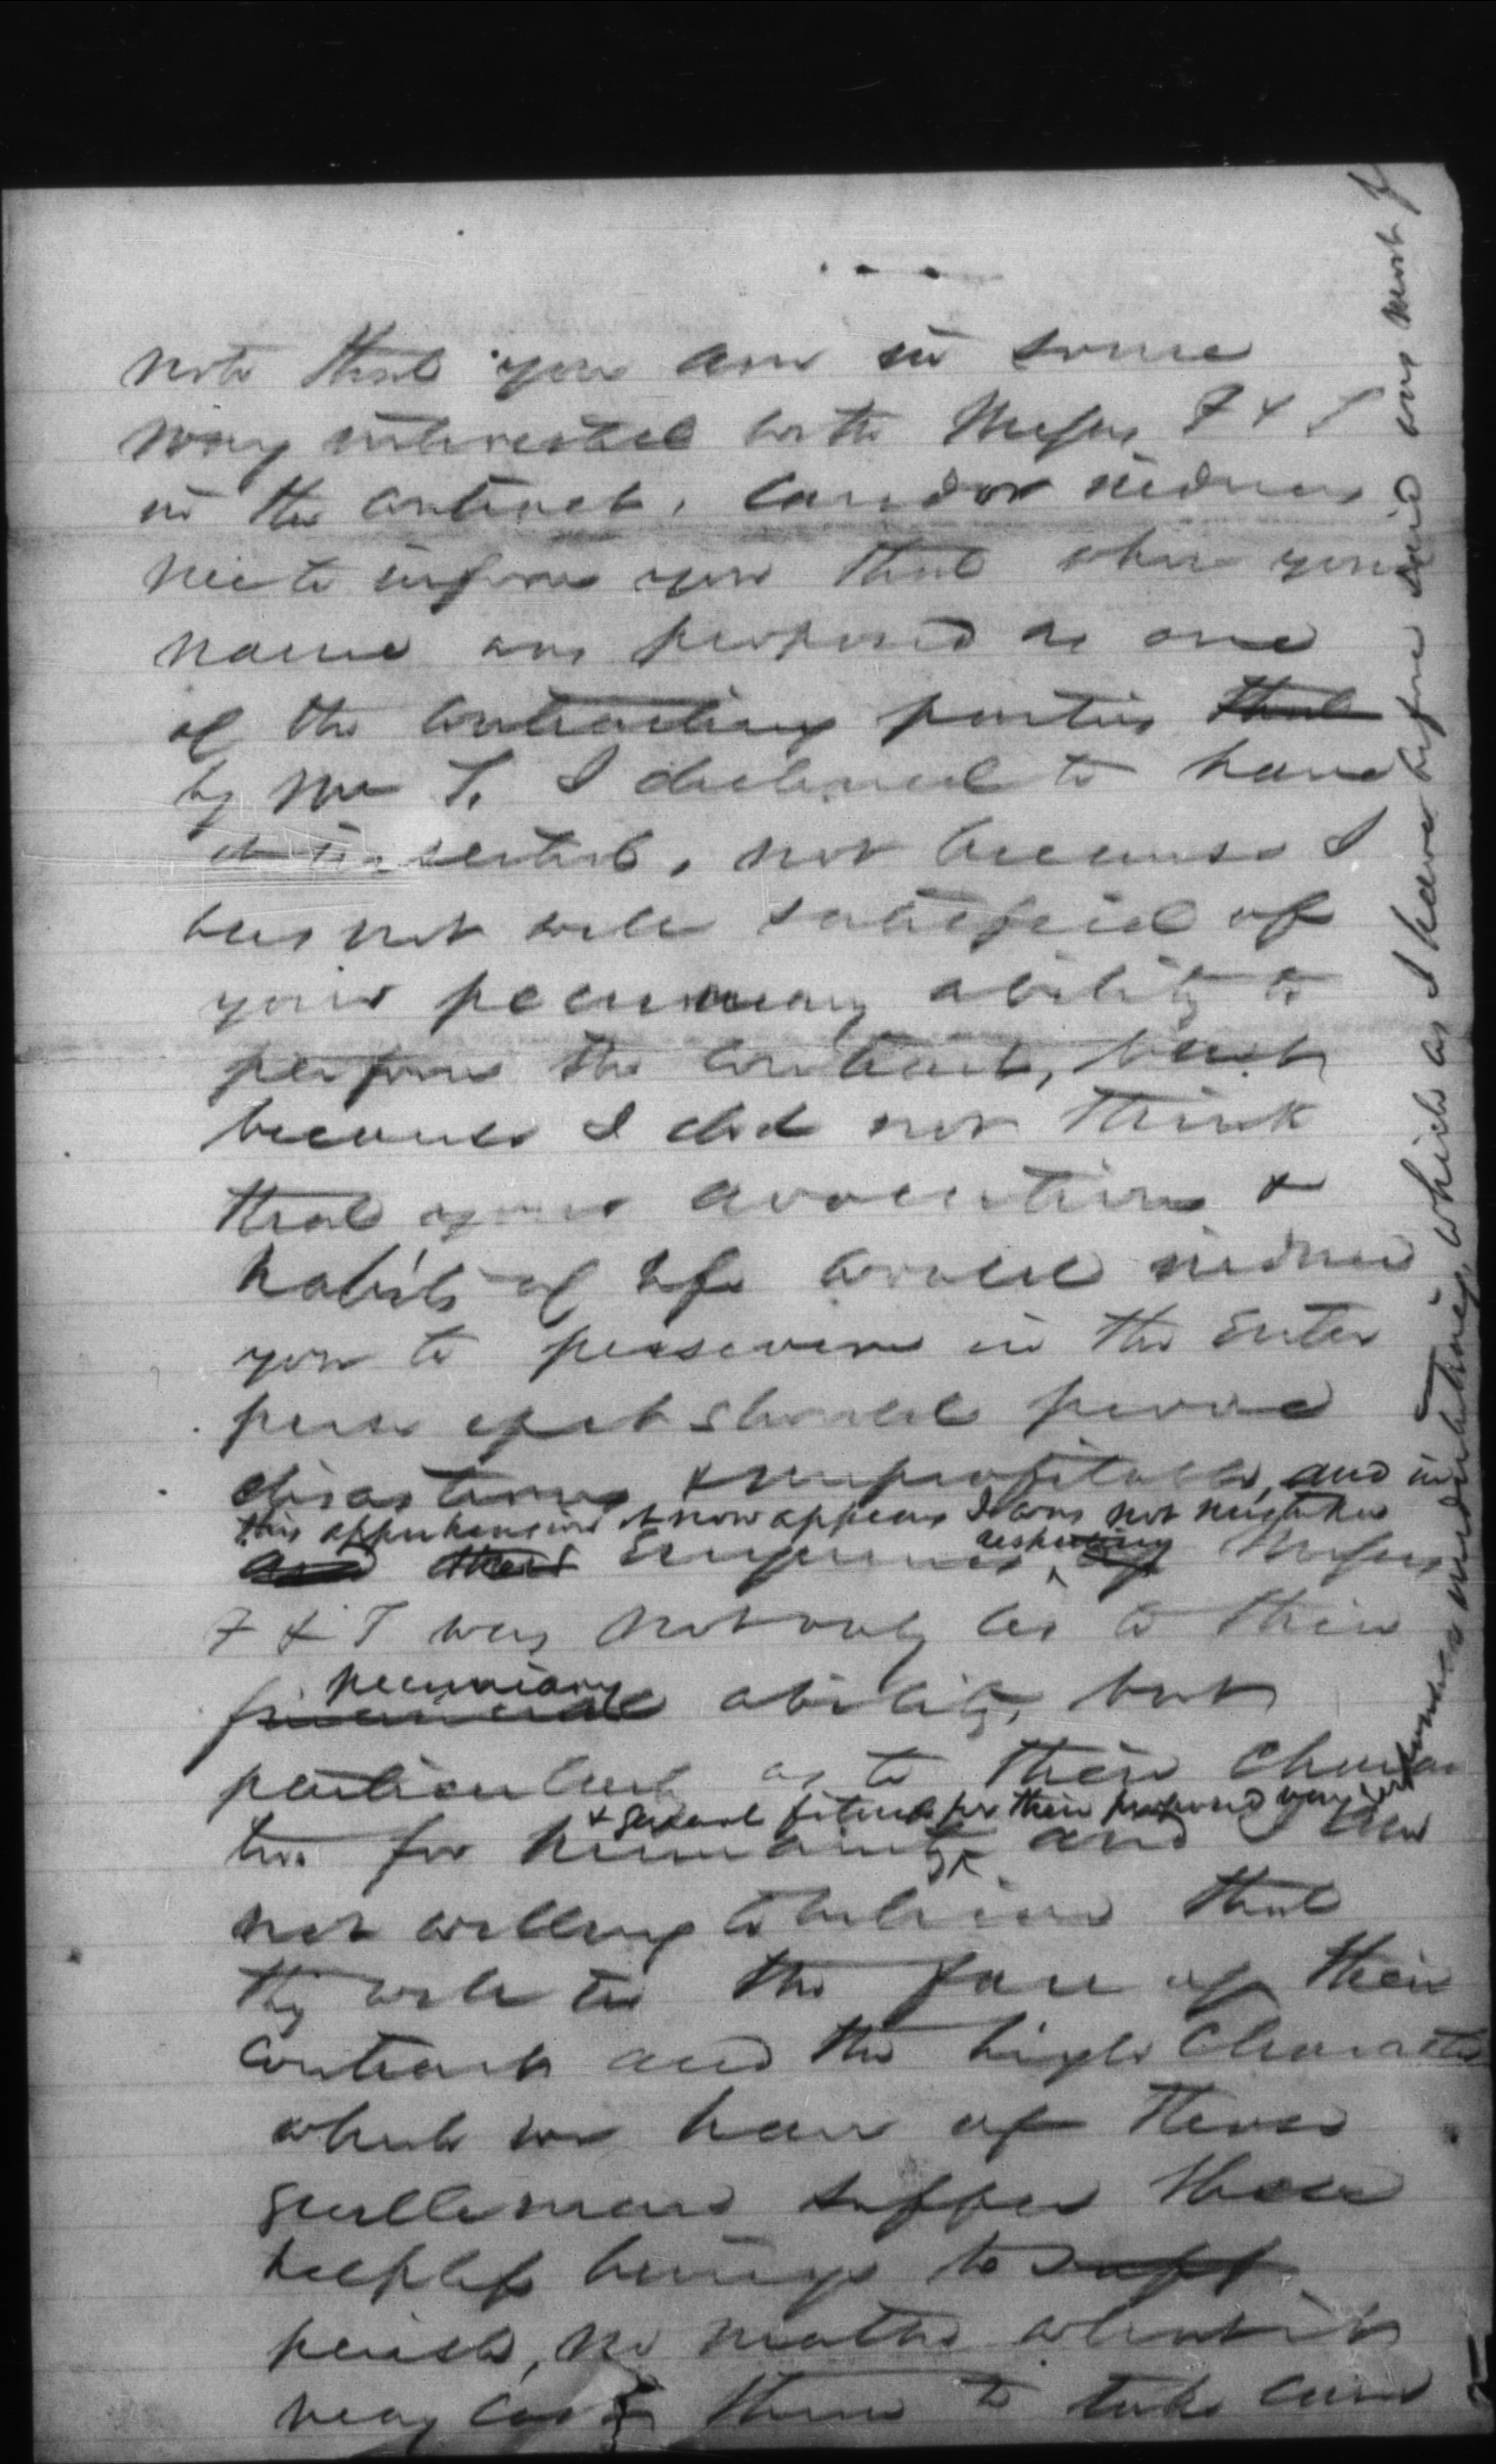 note that you are in some
way interested with Messrs F & T
in the contract, candor induces
me to inform you that when your
name was proposed as one
of the contracting parties that
by Mr T. I declined to have
it inserted, not because I
was not well satisfied of
your pecuniary ability to
perform the contract, but
because I did not think
that your avocations &
habits of life would induce
you to persevere in the enter
prise if it should prove
disastrous & unprofitable, and in
this apprehension it now appears I was not mistaken
and their Enquiries respecting of Messrs
F & T was not only as to their
pecuniary
financial ability, but
particularly as to their charac
& general fitness for their proposed
ter for humanity and I am
not willing to believe that
they will in the face of their
contract and the high character
which we have of these
gentlemen suffer these
helpless beings to suff
perish, no matter what it
may cost them to take care
which as I have before said was most